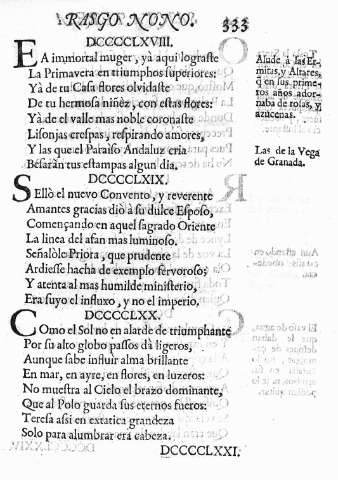 RASGO NONO. 333
DCCCCLXVIII.
EA immortal muger, yà aqui lograste
La Primavera en triumphos superiores:
Yà de tu Casa flores olvidaste
De tu hermosa niñez, con estas flores:
Yà de el valle mas noble coronaste
Lisonjas crespas, respirando amores,
Y las que el Paraiso Andaluz cria
Besaràn tus estampas algun dia.
Alude à las Er-
mitas, y Altares,
q̃ en sus prime-
ros años ador-
naba de rosas, y
azucenas.
Las de la Vega
de Granada.
DCCCCLXIX.
SEllò el nuevo Convento, y reverente
Amantes gracias diò à su dulce Esposo,
Començando en aquel sagrado Oriente
La linea del afan mas luminoso.
Señalòle Priora, que prudente
Ardiesse hacha de exemplo fervoroso;
Y atenta al mas humilde ministerio,
Era suyo el influxo, y no el imperio.
DCCCCLXX.
COmo el Sol no en alarde de triumphante
Por su alto globo passos dà ligeros,
Aunque sabe influir alma brillante
En mar, en ayre, en flores, en luzeros:
No muestra al Cielo el brazo dominante,
Que al Polo guarda sus eternos fueros:
Teresa assi en extatica grandeza
Solo para alumbrar era cabeza.
DCCCCLXXI.